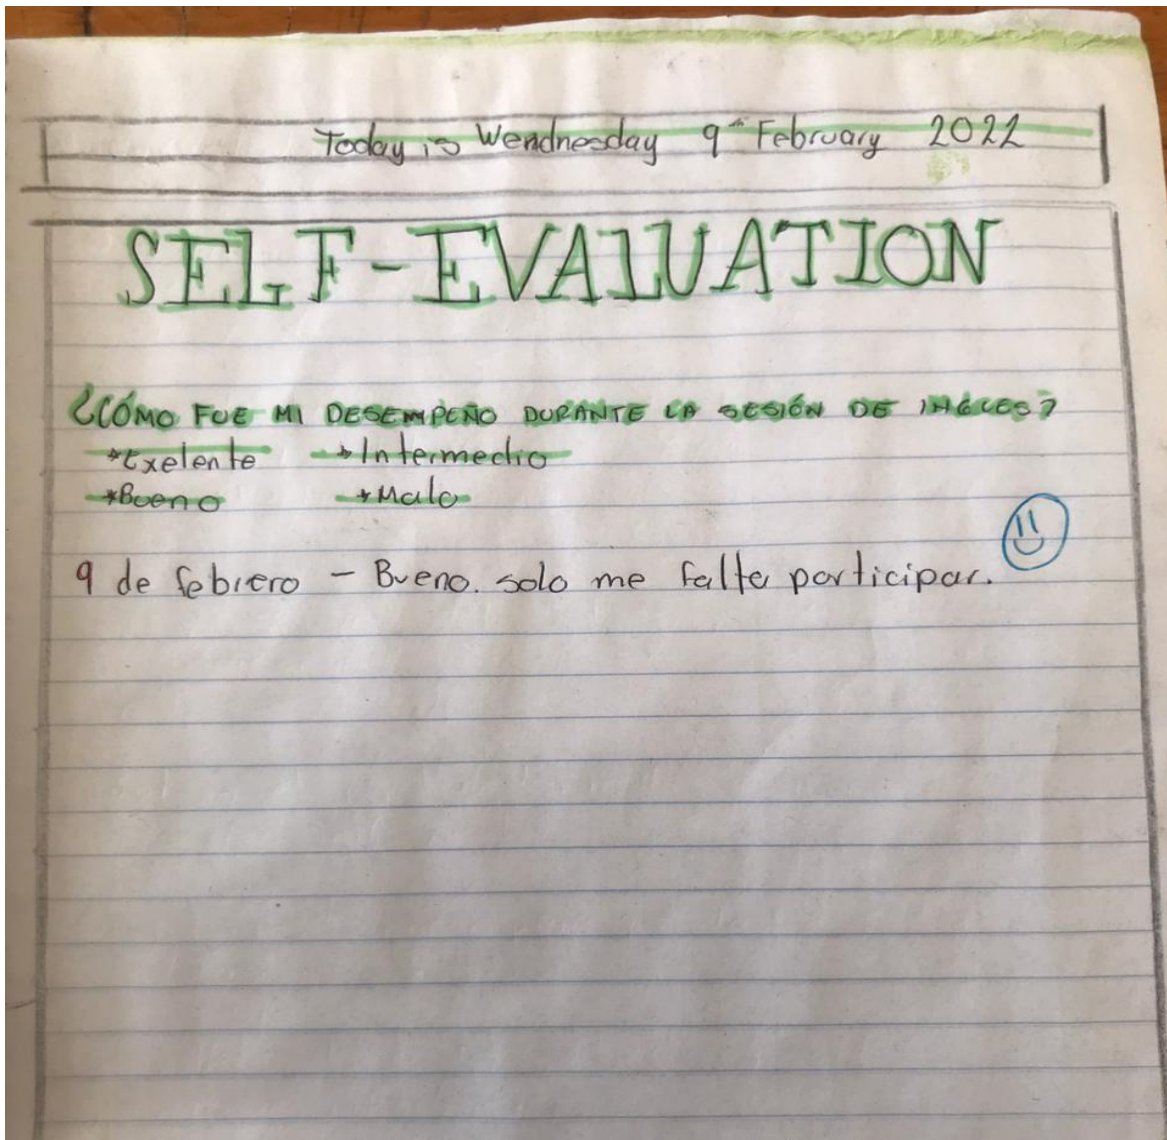 Today is Wendnesday 9th February 2022
SELF-EVALUATION
¿CÓMO FUE MI DESEMPEÑO DURANTE LA SESIÓN DE INGLES?
*Exelente *Intermedio
*Bueno *Malo
9 de febrero - Bueno. solo me falta participar.